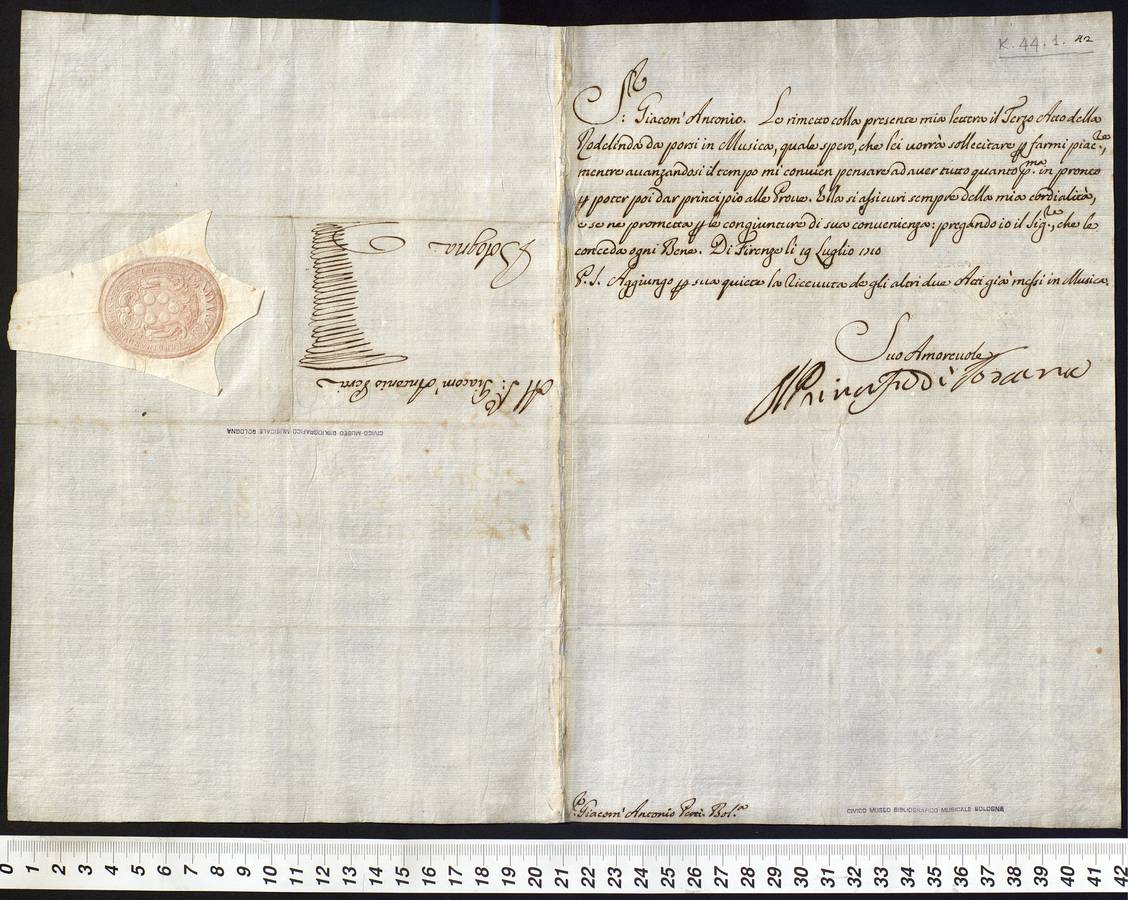 K. 44. 1. 42
Sr: Giacom' Antonio. Le rimetto colla presente mia lettera il Terzo Atto della
Rodelinda da porsi in Musica, quale spero, che lei vorrà sollecitare p farmi piac.re,
mentre avanzandosi il tempo mi convien pensare ad aver tutto quanto p.ma in pronto
p poter poi dar principio alle Prove. Ella si assicuri sempre della mia cordialità,
e se ne prometta p le congiunture di sua convenienza: pregando io il Sig.re, che le
conceda ogni Bene. Di Firenze li 19 Luglio 1710
P. S. Aggiungo p sua quiete la Ricevuta de gli altri due Atti già messi in Musica.
Suo Amorevole
Il Principe di Toscana
Sr. Giacom' Antonio Perti. Bol.a
CIVICO MUSEO BIBLIOGRAFICO MUSICALE BOLOGNA
Al Sr: Giacom' Antonio Perti
Bologna
CIVICO MUSEO BIBLIOGRAFICO MUSICALE BOLOGNA
0 1 2 3 4 5 6 7 8 9 10 11 12 13 14 15 16 17 18 19 20 21 22 23 24 25 26 27 28 29 30 31 32 33 34 35 36 37 38 39 40 41 42